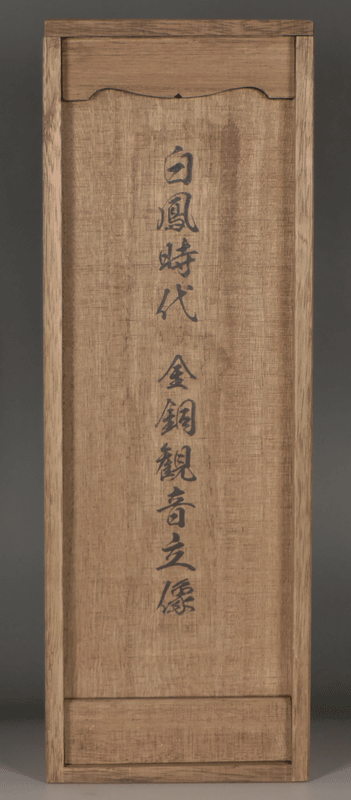 白鳳時代 金銅観音立像